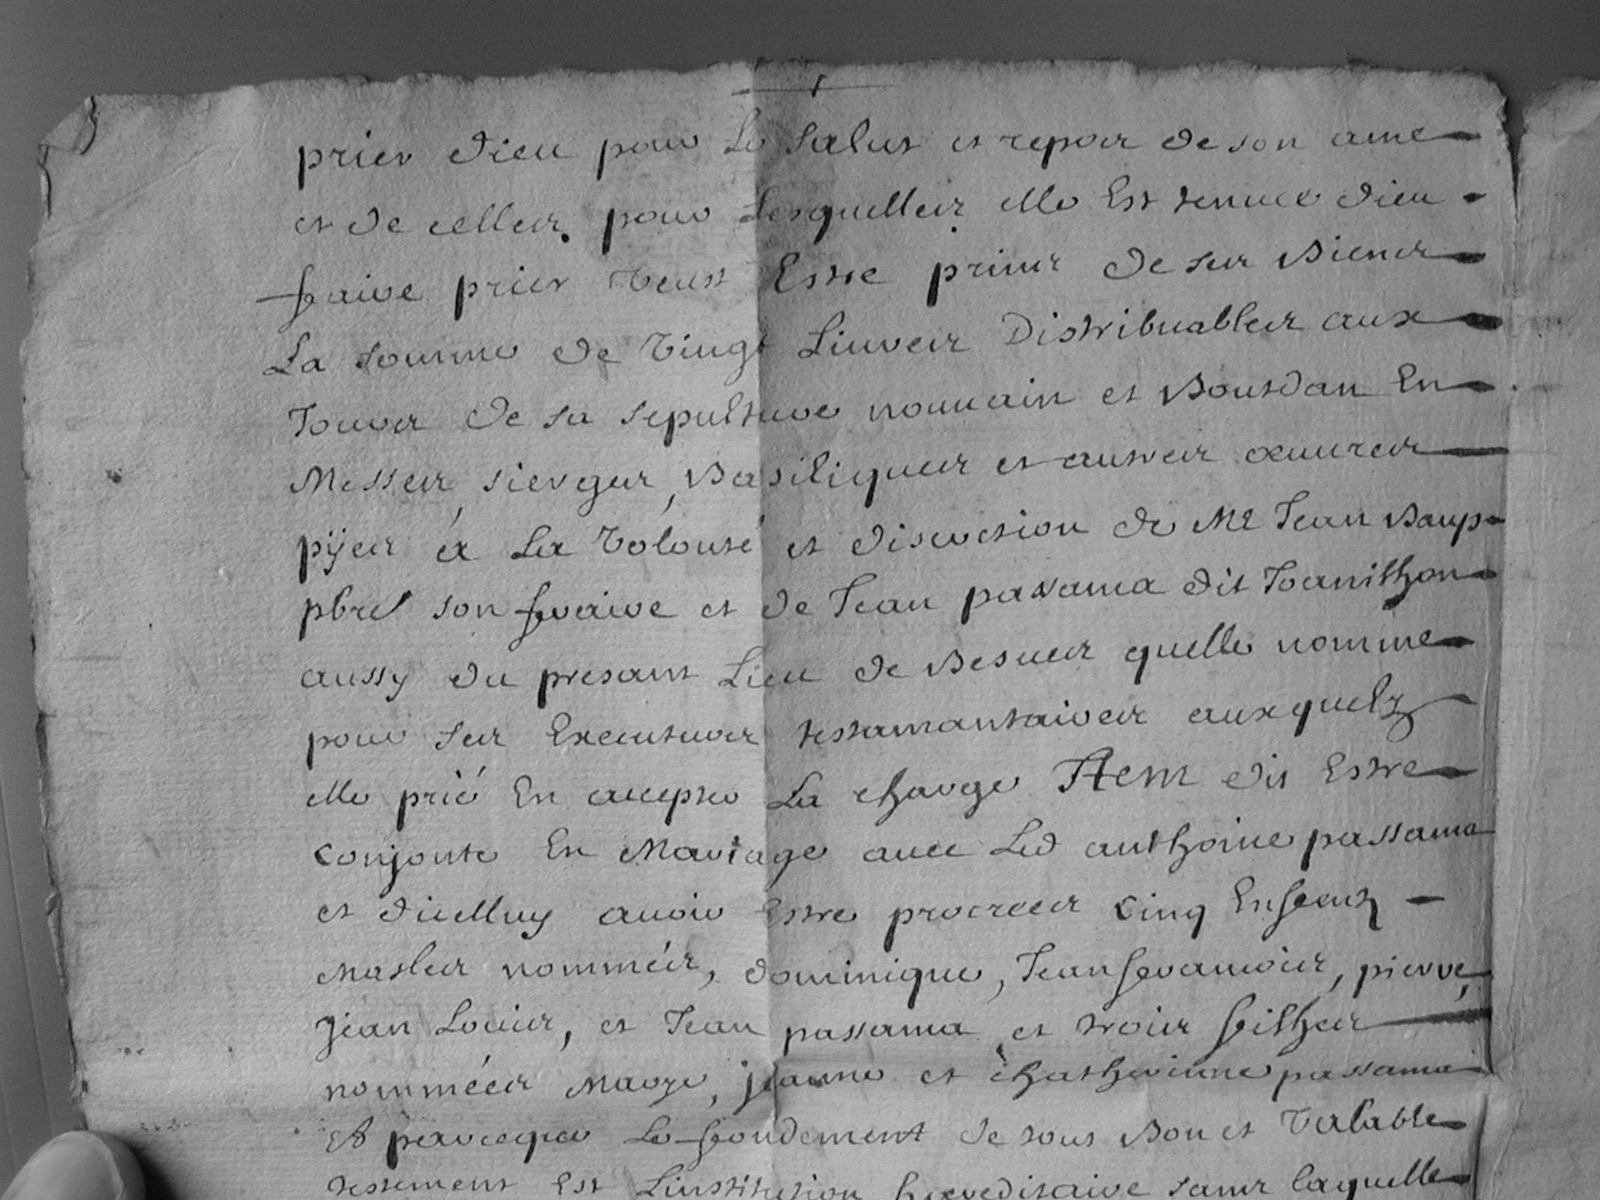 prier dieu pour Le salut et repos de son ame
et de celles pour Lesquelles elle Est tenuee dieu
faire prier veust Estre prins de ses Biens
La somme de vingt Liuvres Distribuables aux
Jours de sa sepulture nouvain et Boutdan En
Messes, sierges, Basiliques et autres œuures
pijes a La volonté et discretion de Mr Jean Baup
pbre son fraire et de Jean passama dit Toanithon
aussy du presant Lieu de Besues quelle nomme
pour ses Executurs testamantaires auxquelz
elle prié En accepter La charge Item dit Estre
conjonte En Mariage avec Led anthoine passama
et dicelluy avoir Estre procrees cinq Enfentz
Masles nommés, dominique, Jean francois, pierre,
jean Louis, et Jean passama et trois filhes
nommées Marye, jeanne et Chatherinne passama
Et parceque Le fondement de tout Bon et valable
testement Est Linstitution hereditaire sans laquelle